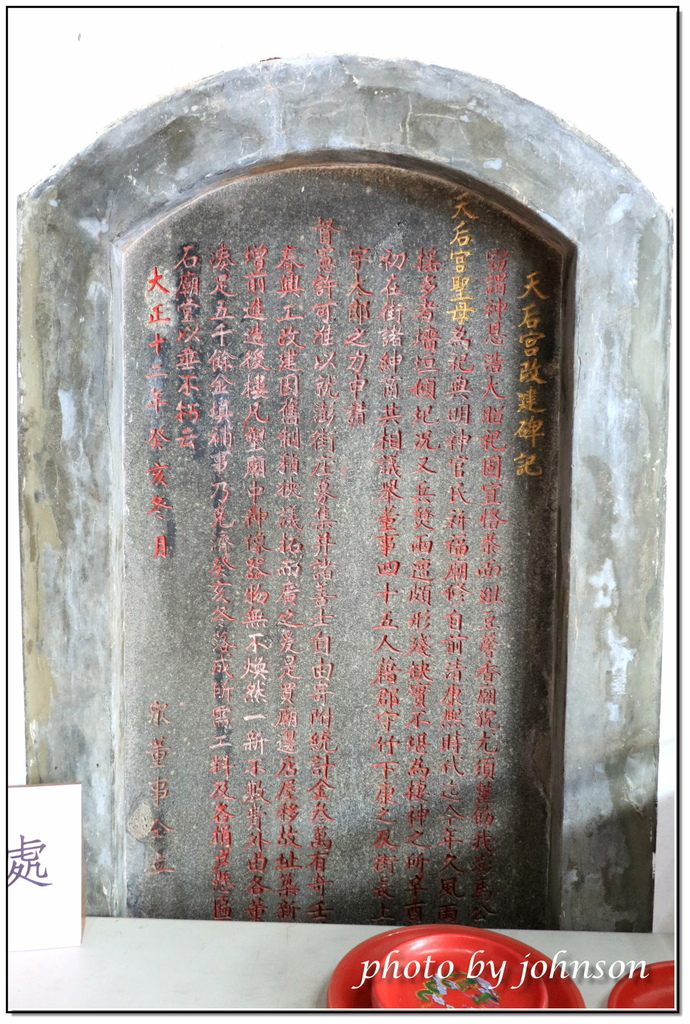 天后宮改建碑記
竊謂神恩浩大昭祀固宜恪恭而俎豆馨香廟貌尤須整飭我
天后宮聖母為祀典明神官民祈福廟修自前清康熙時代迄今年久風雨
搖多者墻垣傾圮况又兵燹雨遭頗形殘缺實不堪為棲神之所辛酉
初在街諸紳商共相議舉董事四十五人藉郡守竹下康之及街長上
宇太郎之力申請
督憲許可准以就澎街庄募集并諸善士自由寄附統計金叁萬有奇壬
春興工改建因舊制稍狹議拓而廣之爰是買廟邊店屋移故址築新
增前進造後樓凡聖廟中神像器物無不煥然一新不敷背外由各董
湊足五千餘金填補事乃克濟癸亥冬落成所需工料及各捐戶懸匾
石廟堂以垂不朽云
大正十二年癸亥冬月
眾董事仝立
處
photo by johnson